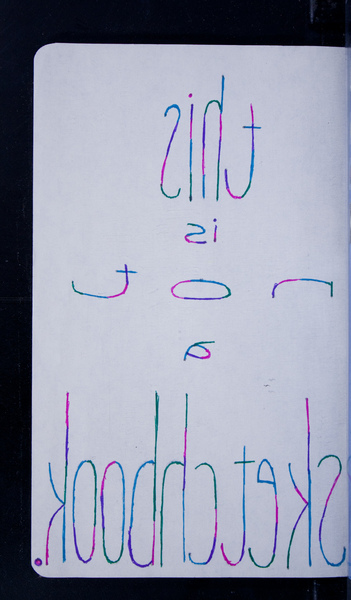 this
is
not
a
sketchbook